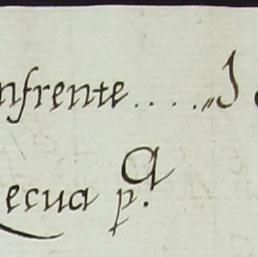 nfrente.....„I
ecua p.ª